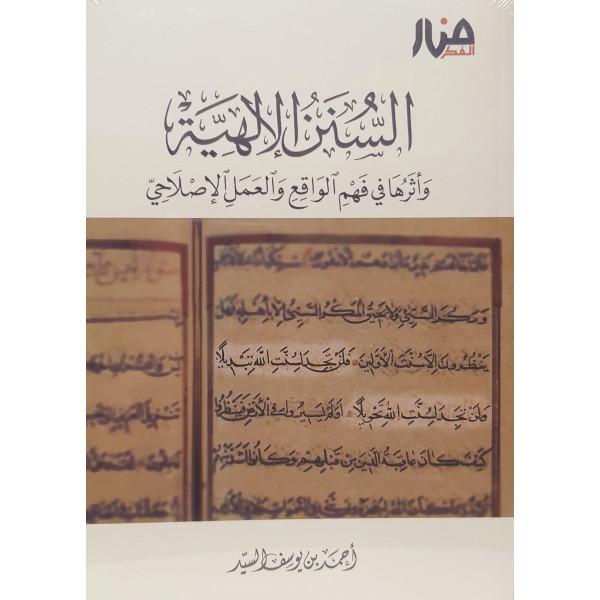 منار
الفكر
السُّنَنُ الإِلٰهِيَّة
وَأَثَرُهَا فِي فَهْمِ الوَاقِعِ وَالعَمَلِ الإِصْلَاحِيّ
ومكر السيئ ولا يحيق المكر السيئ إلا بأهله فهل
ينظرون إلا سنت الأولين فلن تجد لسنت الله تبديلا
ولن تجد لسنت الله تحويلا أولم يسيروا في الأرض فينظروا
كيف كان عاقبة الذين من قبلهم وكانوا أشد منهم
أحمد بن يوسف السيّد